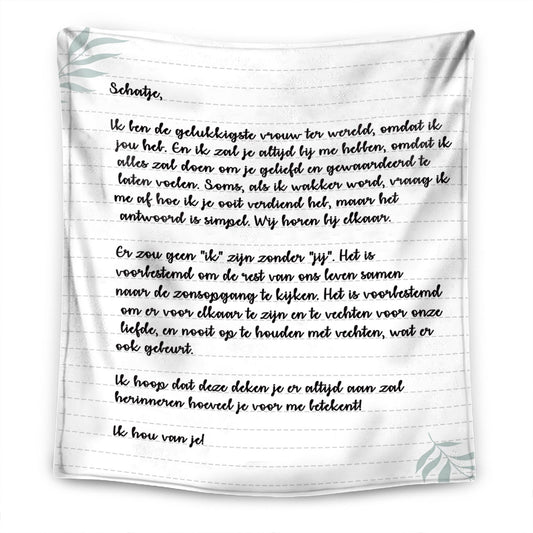 Schatje,
Ik ben de gelukkigste vrouw ter wereld, omdat ik
jou heb. En ik zal je altijd bij me hebben, omdat ik
alles zal doen om je geliefd en gewaardeerd te
laten voelen. Soms, als ik wakker word, vraag ik
me af hoe ik je ooit verdiend heb, maar het
antwoord is simpel. Wij horen bij elkaar.
Er zou geen "ik" zijn zonder "jij". Het is
voorbestemd om de rest van ons leven samen
naar de zonsopgang te kijken. Het is voorbestemd
om er voor elkaar te zijn en te vechten voor onze
liefde, en nooit op te houden met vechten, wat er
ook gebeurt.
Ik hoop dat deze deken je er altijd aan zal
herinneren hoeveel je voor me betekent!
Ik hou van je!